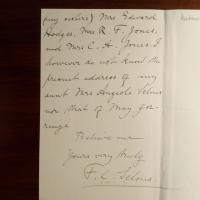 my sisters) Mrs Edward
Hodges, Mrs R. F. Jones,
and Mrs C. A. Jones. I
however do not know the
present address of my
aunt Mrs Angiolo Selous
nor that of May Gor-
ringe
Believe me
Yours very truly
F. C. Selous